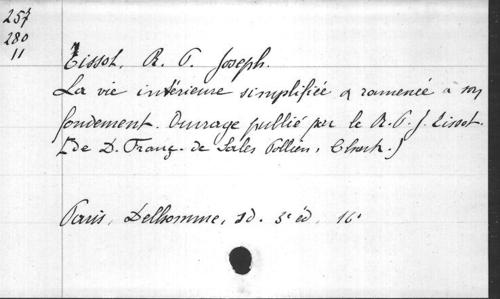 257
280
11
Tissot, R. P. Joseph.
La vie intérieure simplifiée & ramenée à son
fondement. Ouvrage publié par le R. P. J. Tissot.
[de D. Franç. de Sales Pollien, Chart.]
Paris, Delhomme, sd. 5e éd. 16°